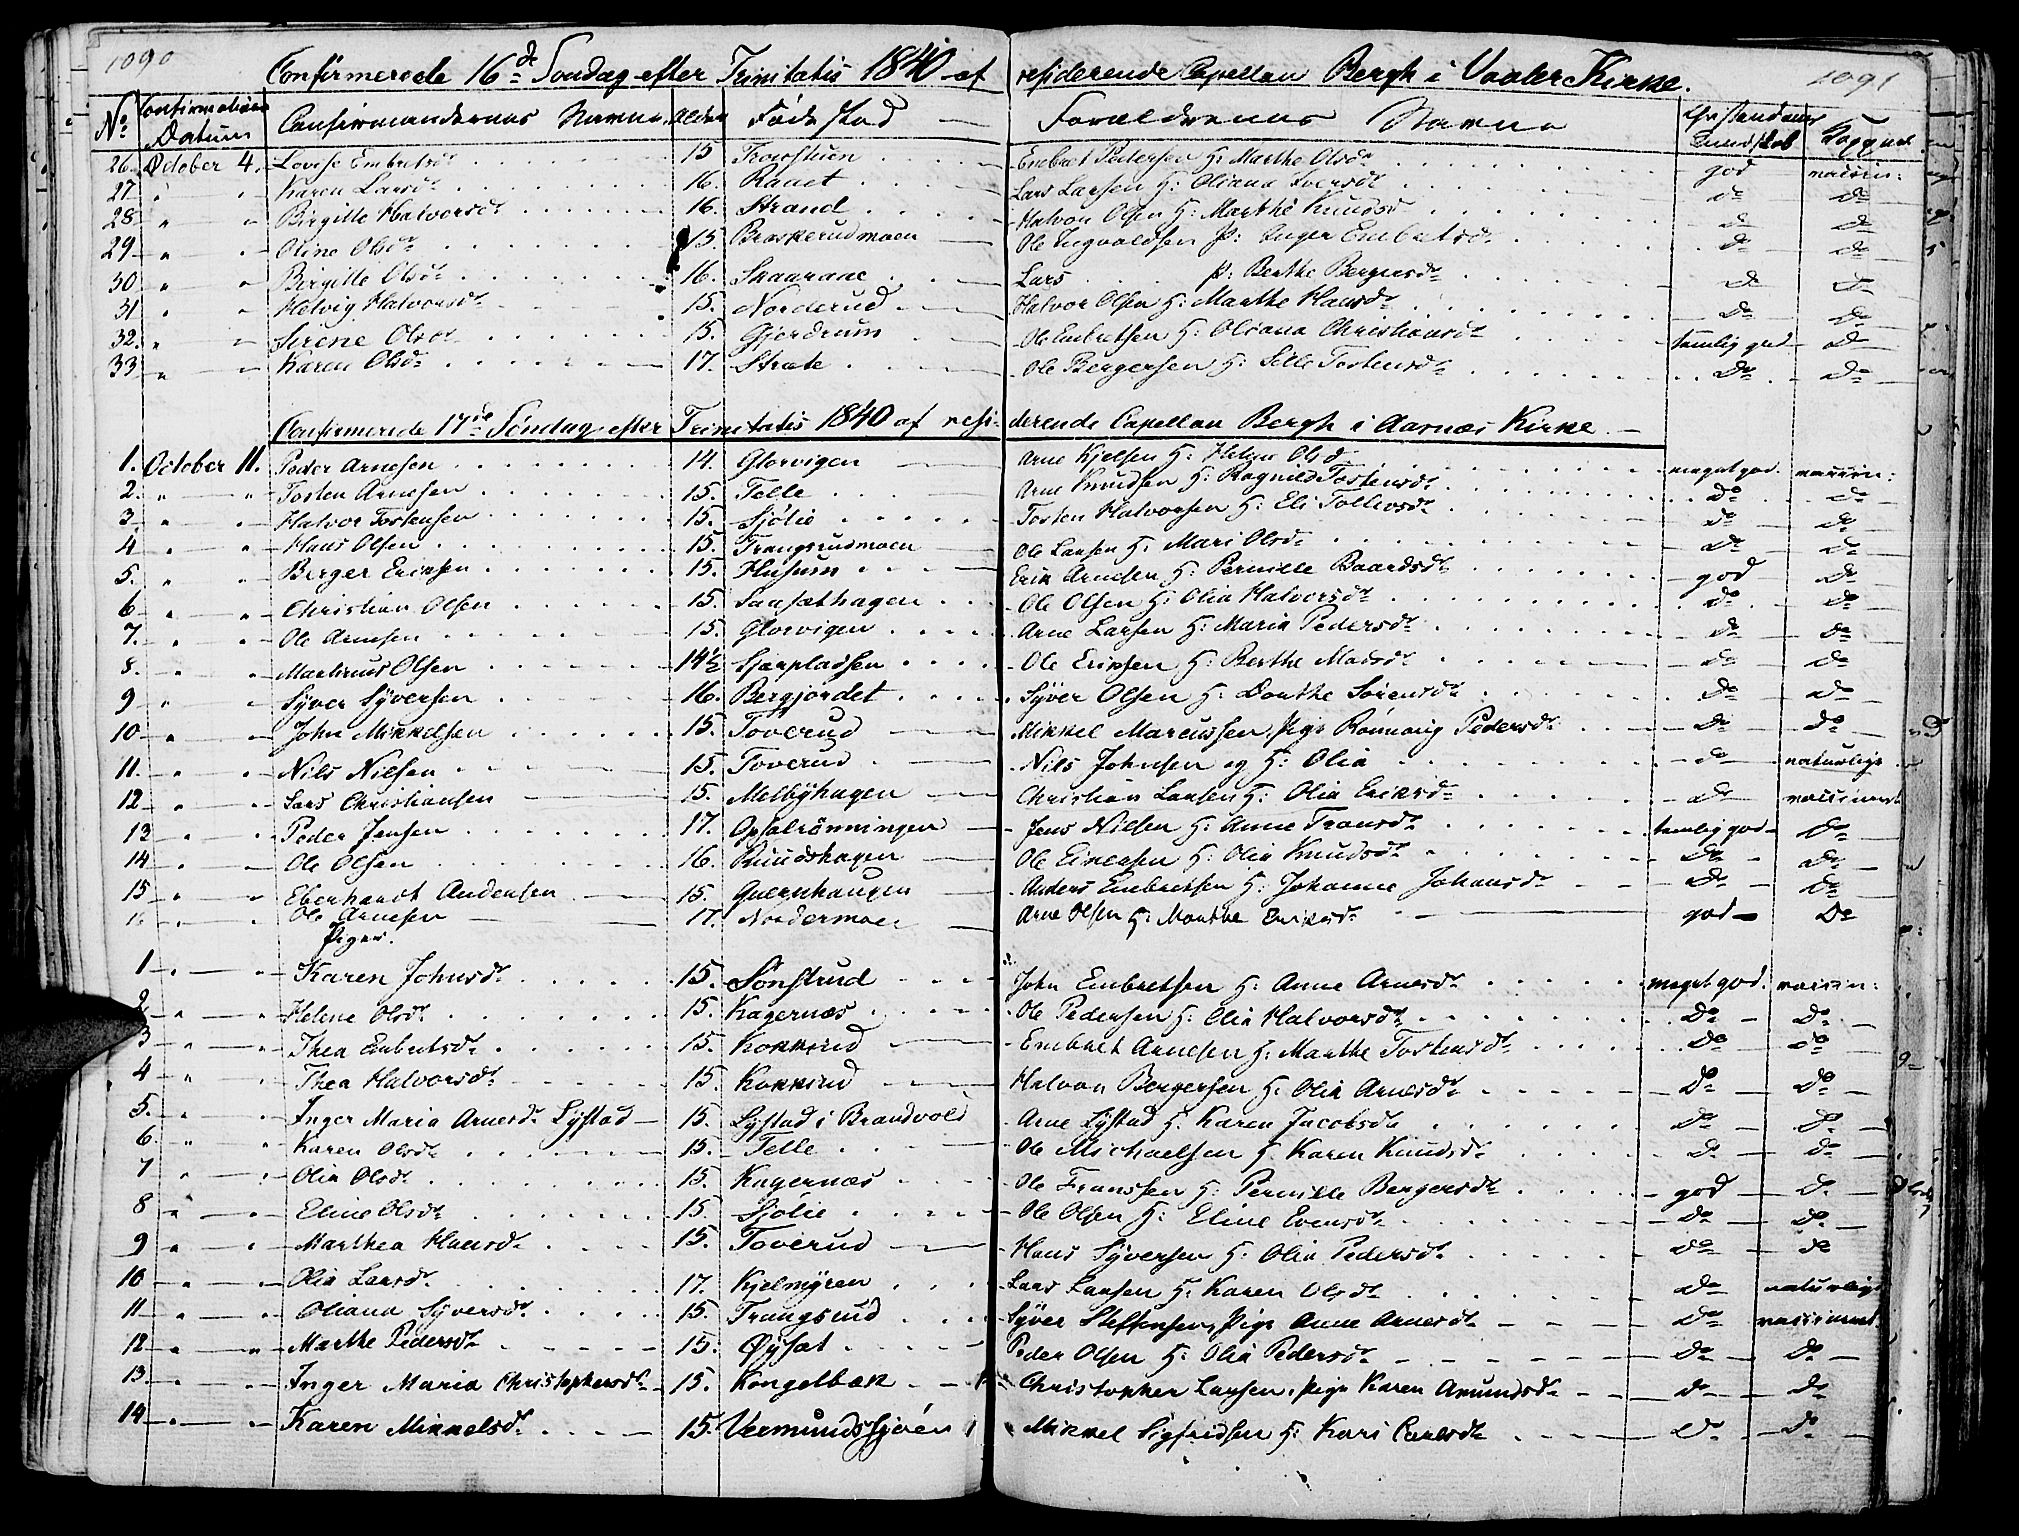 1090
1091
Confirmerede 16d. Søndag efter Trinitatis 1840 af residerende Capellan Bergh i Vaaler Kirke.
No. Confirmations Datum Confirmandernes Navne Alder Fødested Forældrenes Navne Christendoms Kundskab Koppet
26. October 4. Lovise Embretsdr. 15 Embret Pedersen H: Marthe Olsdr. god vaccin:
27 " " Karen Larsdr. 16. Lars Larsen H: Oliana Iversdr. do do
28 " " Birgitte Halvorsdr. 16. Strand Halvor Olsen H: Marthe Knudsd do do
29 " " Oline Olsdr. 15 Braskerudmoen Ole Ingvaldsen P: Inger Embretsdr. do do
30 " " Birgitte Olsdr. 16. Skaarane Lars P: Berthe Bergersdr. do do
31 " " Helvig Halvorsdr. 15. Norderud Halvor Olsen H: Marthe Hansdr. do do
32. " " Sirene Olsdr 15. Gjerdrum Ole Embretsen H: Oliana Christiansdr. temlig god do
33 " " Karen Olsdr. 17. Stræte Ole Bergersen H: Sille Tostensdr. do do
Confirmerede 17de Søndag efter Trinitatis 1840 af residerende Capellan Bergh i Aasnæs Kirke
1. October 11. Peder Arnesen 14. Glorvigen Arne Kjelsen H: Helene Olsd meget god. vaccin:
2. " " Tosten Arnesen 15. Telle Arne Knudsen H: Ragnild Tostensdr. do do
3. " " Halvor Tostensen 15. Sjølie Tosten Halvorsen H: Eli Tollevsdr. do do
4 " " Hans Olsen 15. Trangsrudmoen Ole Larsen H: Mari Olsdr. do do
5. " " Berger Eriksen 15. Husum Erik Arnesen H: Pernille Baardsdr. god do
6 " " Christian Olsen 15. Saasæthagen Ole Olsen H: Olia Halvorsdr. do do
7. " " Ole Arnesen 15. Glorvigen Arne Larsen H: Maria Pedersdr. do do
8. " " Martinus Olsen 14½ Sjærpladsen Ole Eriksen H: Berthe Madsdr. do do
9 " " Syver Syversen 16. Bergjordet Syver Olsen H: Dorthe Sørensdr. do do
10 " " John Mikkelsen 15. Toverud Mikkel Marcussen, Pige Rønnaug Pedersdr. do do
11. " " Nils Nilsen 15. Toverud Nils Johnsen og H: Olia do naturlige
12 " " Lars Christiansen 15. Melbyhagen Christian Larsen H: Olia Eriksdr. do vaccineret
13 " " Peder Jensen 17. Opsalrønningen Jens Nilsen H: Anne Fransdr. temlig god do
14 " " Ole Olsen 16. Knudshagen Ole Einersen H: Olia Knudsdr. do do
15 " " Eberhardt Andersen 15. Quernhaugen Anders Embretsen H: Johanne Johansdr. do do
16 " " Ole Arnesen 17. Nordermoen Arne Olsen H: Marthe Eriksdr. god do
Piger.
1 " " Karen Johnsdr. 15. Sønstrud John Embretsen H: Anne Arnesdr. meget god. vaccin:
2 " " Helene Olsdr. 15. Kagernæs Ole Pedersen H: Olia Halvorsdr. do do
3 " " Thea Embretsdr. 15. Kokkrud Embret Arnesen H: Marthe Tostensdr. do do
4 " " Thea Halvorsdr. 15. Kokkrud Halvor Bergersen H: Olia Arnesdr. do do
5. " " Inger Maria Arnesdr. Lystad 15. Lystad i Brandvold Arne Lystad H: Karen Jacobsdr do do
6. " " Karen Olsdr. 15. Telle Ole Michaelsen H: Karen Knudsdr. do do
7 " " Olia Olsdr. 15. Kagernæs Ole Franssen H: Pernille Bergersdr. god do
8 " " Eline Olsdr. 15. Sjølie Ole Olsen H: Eline Evensdr. do do
9 " " Marthea Hansdr. 15. Toverud Hans Syversen H: Olia Pedersdr. do do
10 " " Olia Larsdr. 17. Kjelmyren Lars Larsen H: Karen Olsdr do naturlige
11 " " Oliana Syversdr. 15. Trangsrud Syver Steffensen, Pige Anne Arnesdr. do vaccineret
12 " " Marthe Pedersdr. 15. Øysæt Peder Olsen H: Olia Pedersdr. do do
13. " " Inger Maria Christophersdr. 15. Kongelbæk Christopher Larsen, Pige Karen Amundsdr. do do
14 " " Karen Mikkelsdr. 15. Vermundssjøen Mikkel Sigfridsen H: Kari Carlsdr. do do